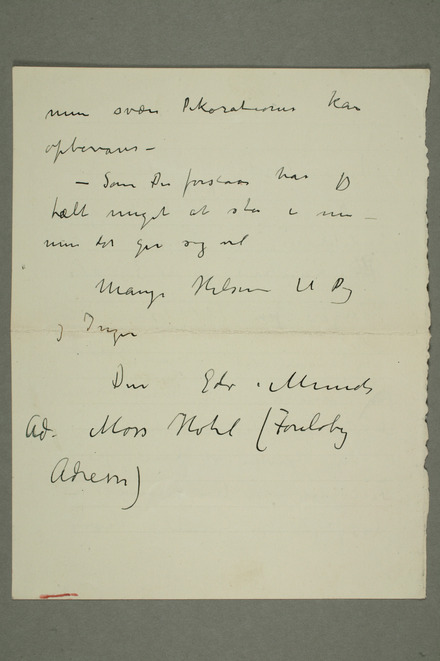 min svære Dekorationer kan
opbevares –
– Som Du forstaar har jeg
helt meget at staa i nu –
men det gir sig vel
Mange Hilsener til Dig
og Inger
Din Edv. Munch
Ad. Moss Hotel (Foreløbig
Adresse)